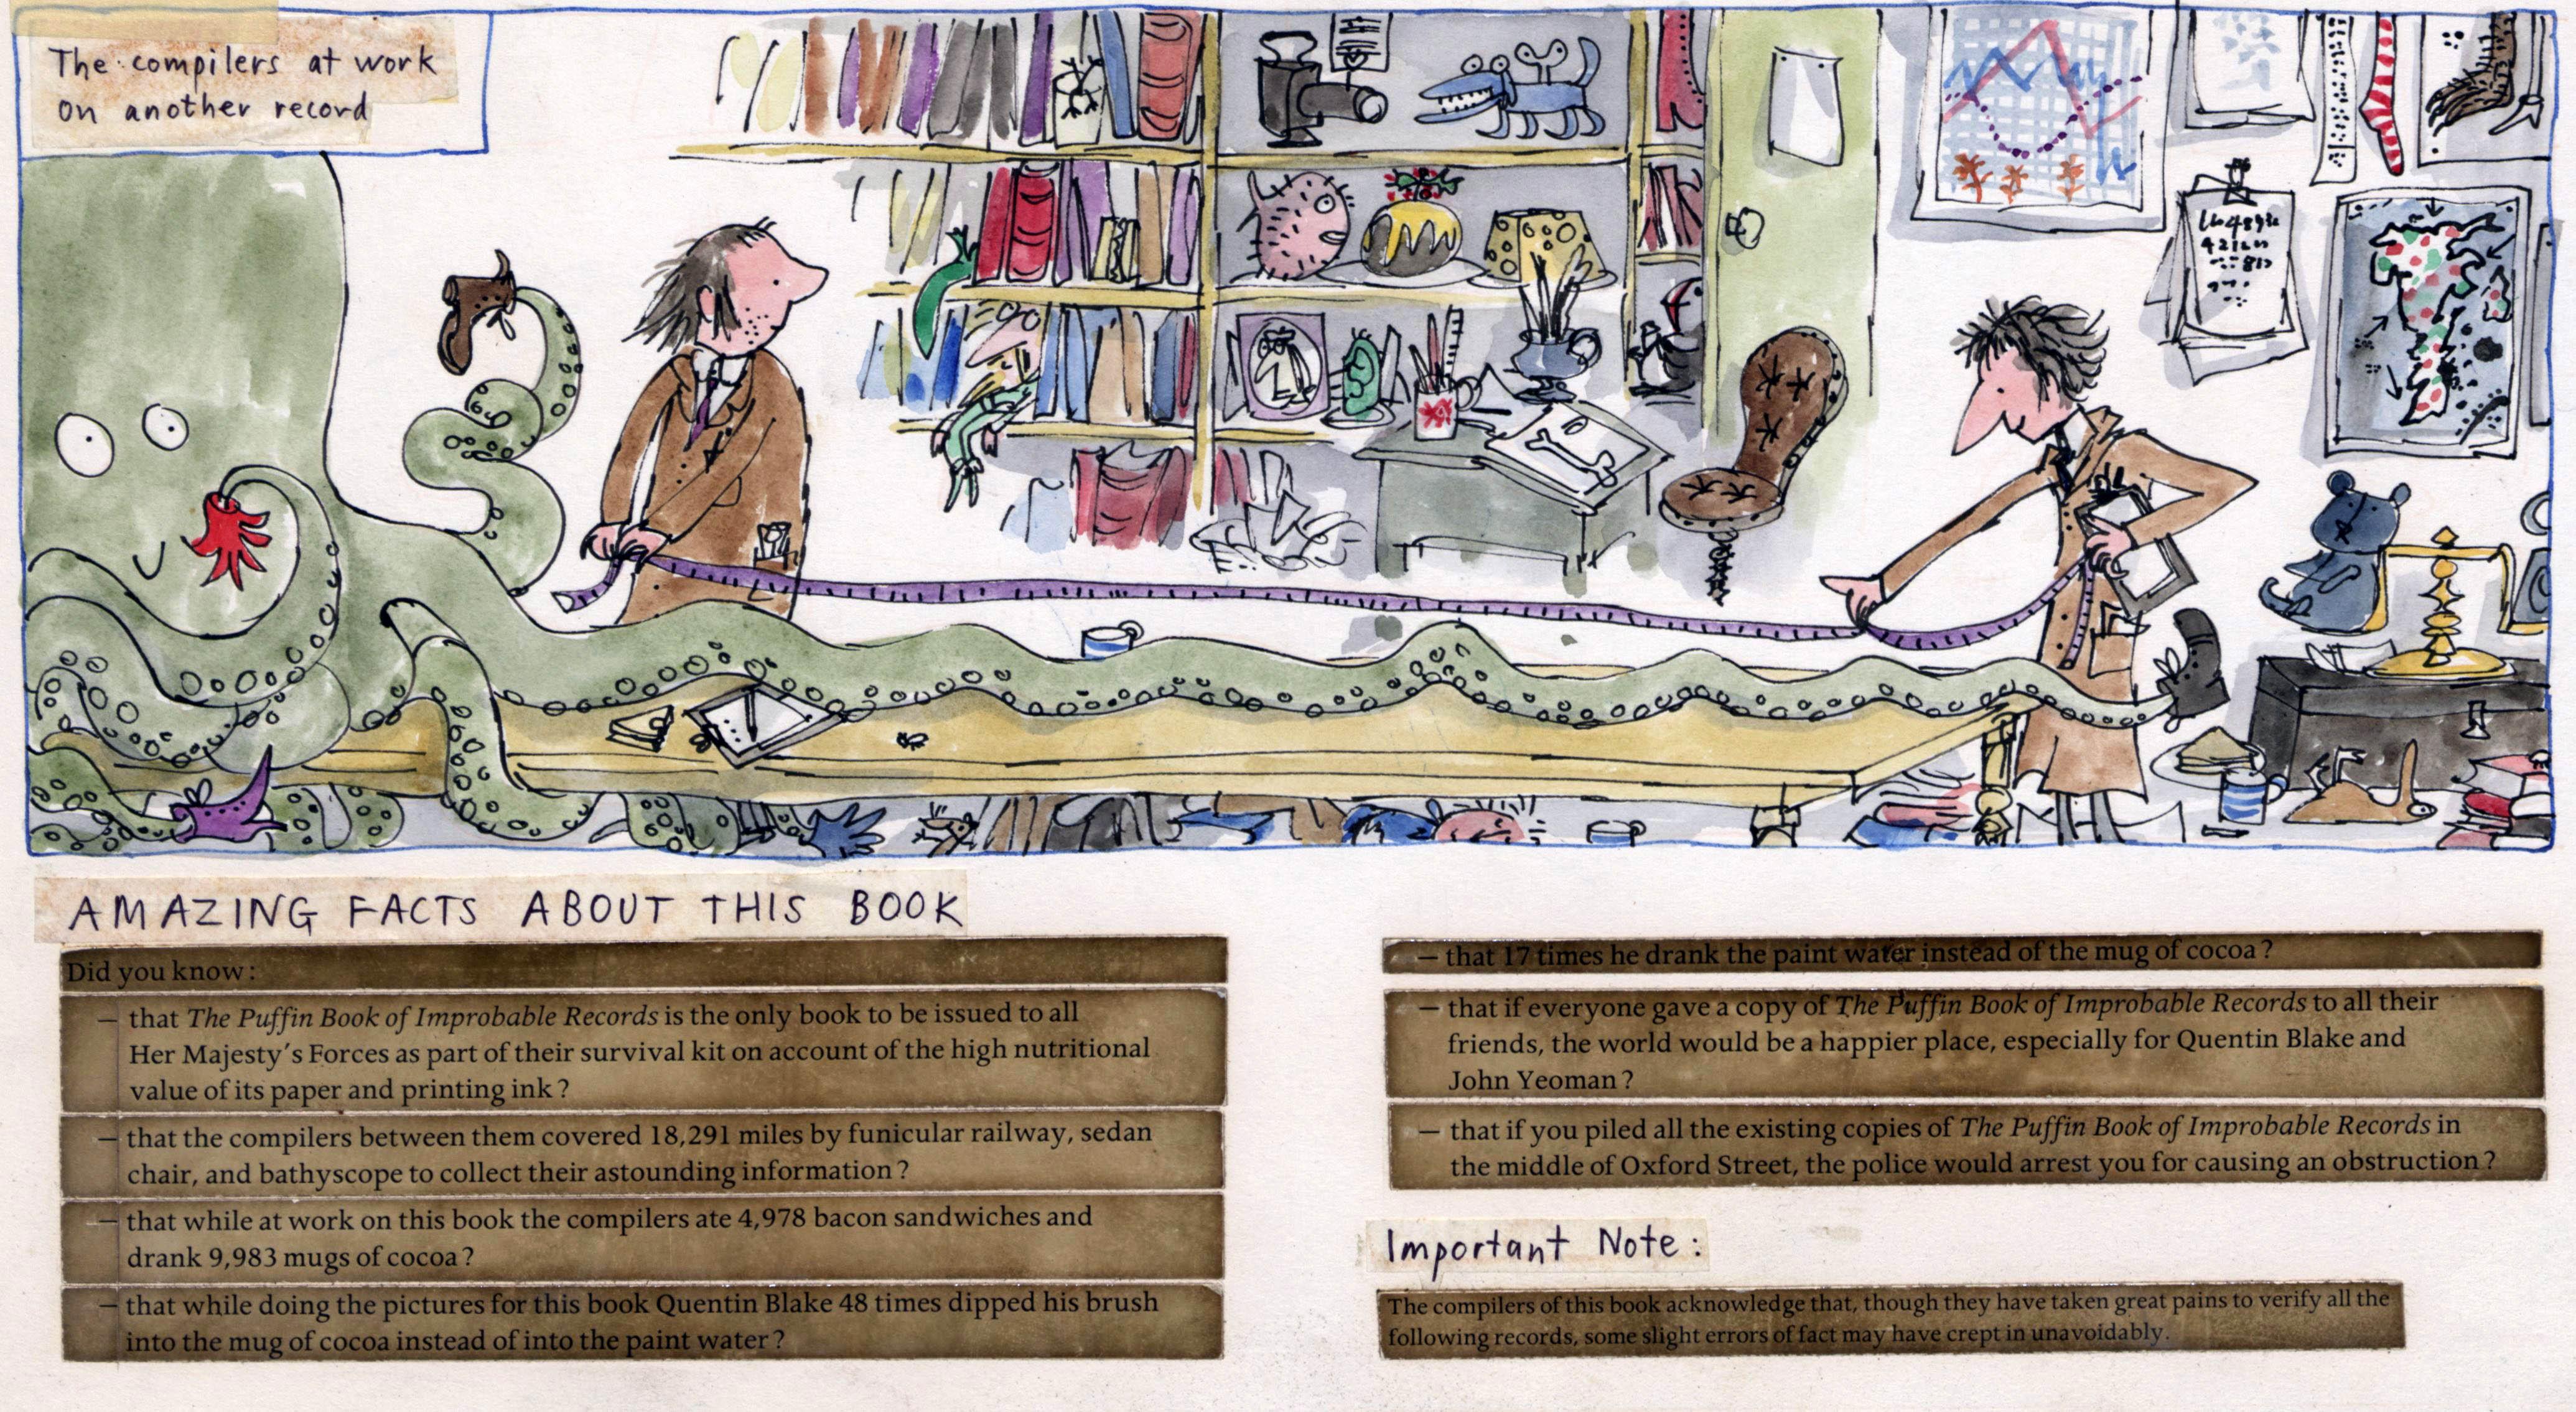 The compilers at work
on another record
AMAZING FACTS ABOUT THIS BOOK
Did you know:
— that The Puffin Book of Improbable Records is the only book to be issued to all
Her Majesty's Forces as part of their survival kit on account of the high nutritional
value of its paper and printing ink?
— that the compilers between them covered 18,291 miles by funicular railway, sedan
chair, and bathyscope to collect their astounding information?
— that while at work on this book the compilers ate 4,978 bacon sandwiches and
drank 9,983 mugs of cocoa?
— that while doing the pictures for this book Quentin Blake 48 times dipped his brush
into the mug of cocoa instead of into the paint water?
— that 17 times he drank the paint water instead of the mug of cocoa?
— that if everyone gave a copy of The Puffin Book of Improbable Records to all their
friends, the world would be a happier place, especially for Quentin Blake and
John Yeoman?
— that if you piled all the existing copies of The Puffin Book of Improbable Records in
the middle of Oxford Street, the police would arrest you for causing an obstruction?
Important Note:
The compilers of this book acknowledge that, though they have taken great pains to verify all the
following records, some slight errors of fact may have crept in unavoidably.